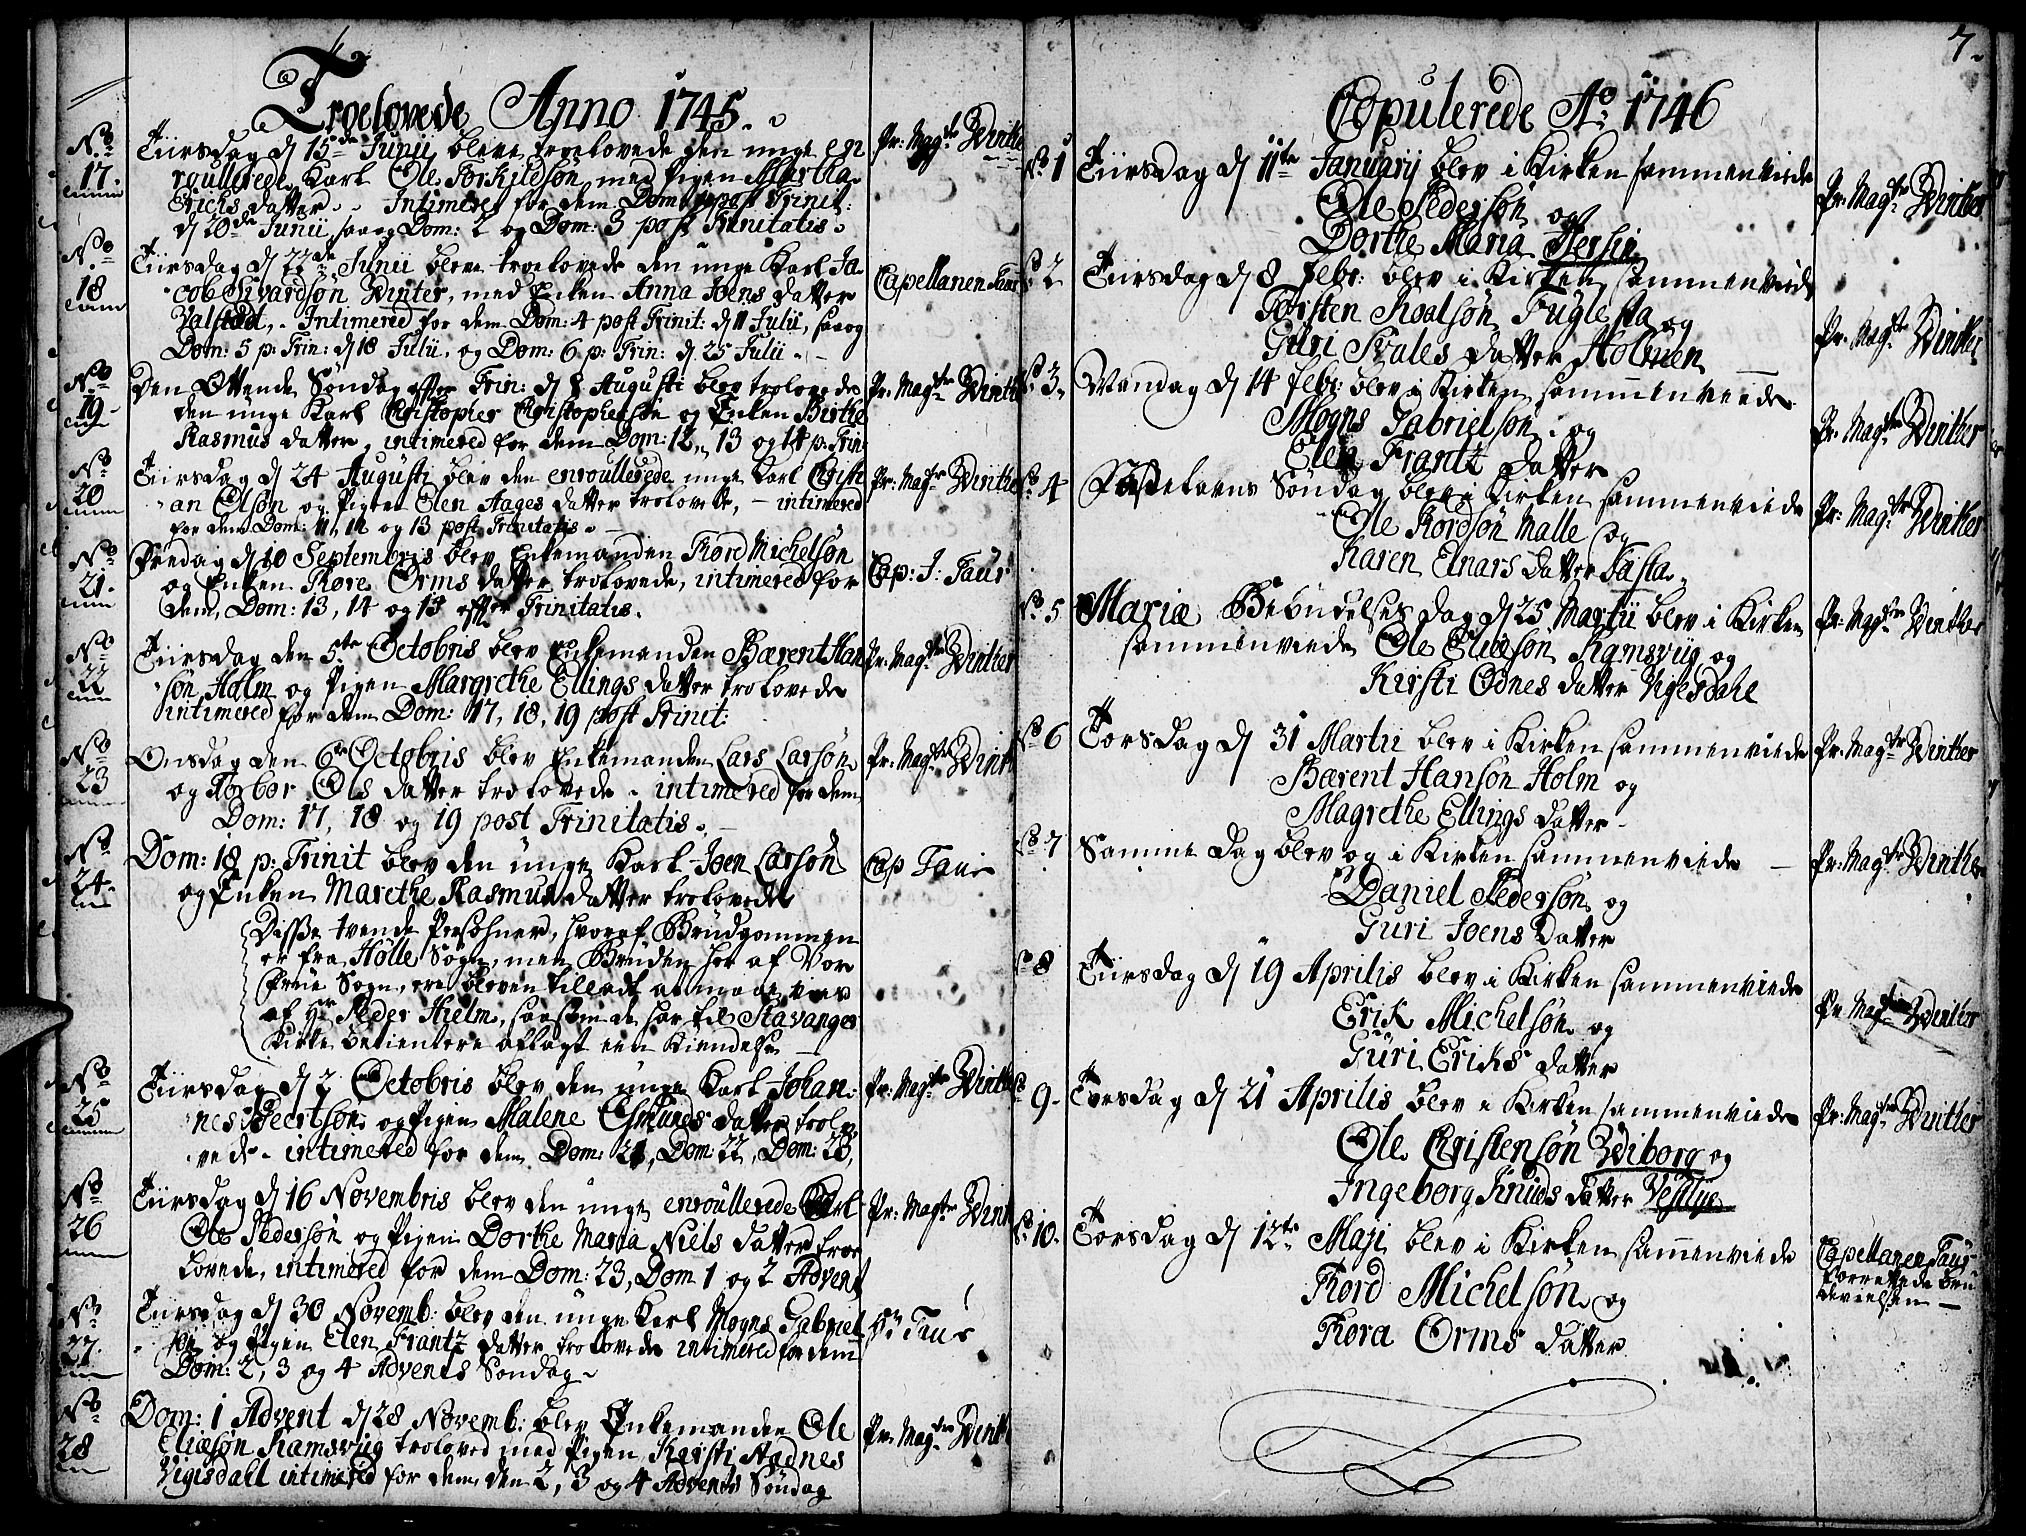 Troelovede Anno 1745.
No 17 Tiirsdag d 15de Junii bleve troelovede den unge en
roullerede Karl Ole Torkildsøn med Pigen Martha
Erichs datter. Intimeret for dem Dom: 1 post Trinit:
d 20de Junii saa og Dom: 2 og Dom: 3 post Trinitatis.
Pr: Magtr Winther
No 18 Tiirsdag d 22de Junii bleve troelovede den unge Karl Ja
cob Sivardsøn Winter, med Enken Anna Joens datter
Valstad, Intimered for dem Dom: 4 post Trinit: d 11 Julii, saa og
Dom: 5 p: Trin: d 18 Julii, og Dom: 6 p: Trin: d 25 Julii
Capellanen Taus
No 19 Den Ottende Søndag efter Trin: d 8 Augusti blev trolovede
den unge Karl Christopher Christophersøn og Enken Birthe
Rasmus datter, intimered for dem Dom: 12, 13 og 14 p: Trin:
Pr: Magtr Winther
No 20 Tiirsdag d 24 Augusti blev den enroullerede unge Karl Christi
an Olsøn og Pigen Elen Aages datter trolovede, intimered
for dem Dom: 11, 12 og 13 post Trinitatis.
Pr: Magtr Winther
No 21. Fredag d 10 Septembris blev Enkemanden Tord Michelsøn
og Enken Tore Orms datter trolovede, intimered for
dem, Dom: 13, 14 og 15 efter Trinitatis.
Cap: J: Taus
No 22 Tiirsdag den 5te Octobris blev Enkemanden Bærent Han
søn Holm og Pigen Margrethe Ellings datter trolovede
intimered for dem Dom: 17, 18, 19 post Trinit:
Pr: Magtr Winther
No 23 Onsdag den 6te Octobris blev Enkemanden Lars Larsøn
og Torbor Ols datter trolovede. intimered for dem
Dom: 17, 18 og 19 post Trinitatis.
Pr: Magtr Winth
No 24. Dom: 18 p: Trinit blev den unge Karl Joen Larsøn
og Enken Marethe Rasmus datter trolovede
Disse tvende Persohner, hvoraf Brudgommen
er fra Hølle Sogn, men Bruden her af Vor
Frue Sogn, ere bleven tilladt at maae vies
af Hr Peder Hielm, saasom de har til Stavanger
Kirke betientere aflagt een Kiendelse
Cap Taus
No 25 Tiirsdag d 2 Octobris blev den unge Karl Johan:
nes Beertsøn og Pigen Malene Esmunds datter trolo
vede. intimered for dem Dom: 21, Dom: 22, Dom: 23,
Pr: Magtr Winth
No 26 Tiirsdag d 16 Novembris blev den unge enroullerede Karl
Ole Pedersøn og Pigen Dorthe Maria Niels datter troe
lovede, intimered for dem Dom: 23, Dom 1 og 2 Advent
Pr: Magtr Wint
No 27. Tiirsdag d 30 Novemb: blev den unge Karl Mogns Gabriel
søn og Pigen Elen Frantz datter trolovede intimered for dem
Dom: 2, 3 og 4 Advents Søndag
Taus
No 28 Dom: 1 Advent d 28 Novemb: blev Enkemanden Ole
Eliæsøn Ramsvüg troloved med Pigen Kirsti Aadnes
Vigisdall intimered for dem den 2, 3 og 4 Advents Søndag
Pr: Magtr Winth
7.
Copulerede Ao 1746
No 1 Tiirsdag d 11te Januarij blev i Kirken sammenviede
Ole Pedersøn og
Dorthe Maria Hersin
Pr: Magtr Winther
No 2 Tiirsdag d 8 febr: blev i Kirken sammenviede
Torsten Roalsøn Fuglesta og
Guri Tvales datter Holmen
Pr: Magtr Winther
No 3. Mandag d 14 febr: blev i Kirken sammenviede
Mogns Gabrielsøn og
Elen Frantz datter
Pr: Magtr Winther
No 4 Fastelavns Søndag blev i Kirken sammenviede
Ole Tordsøn Malle og
Karen Einars datter Tasta.
Pr: Magtr Winther
No 5 Mariæ Bebudelses dag d 25 Martii blev i Kirken
sammenviede Ole Eliæsøn Ramsvüg og
Kirsti Odnes datter Vigesdahl
Pr: Magtr Winther
No 6 Torsdag d 31 Martii blev i Kirken sammenviede
Bærent Hansøn Holm og
Magrethe Ellings datter
Pr: Magtr Winther
No 7 Samme dag blev og i Kirken sammenviede
Daniel Pedersøn og
Guri Joens datter
Pr: Magtr Winther
No 8 Tiirsdag d 19 Aprilis blev i Kirken sammenviede
Erik Michelsøn og
Guri Eriks datter
Pr Magtr Winther
No 9. Torsdag d 21 Aprilis blev i Kirken sammenviede
Ole Christensøn Wiborg og
Ingeborg Knuds datter Vestlye
Pr: Magtr Winther
No 10. Torsdag d 12te Maji blev i Kirken sammenviede
Tord Michelsøn og
Tora Orms datter
Capellanen Taus
forrettede bru
devielsen